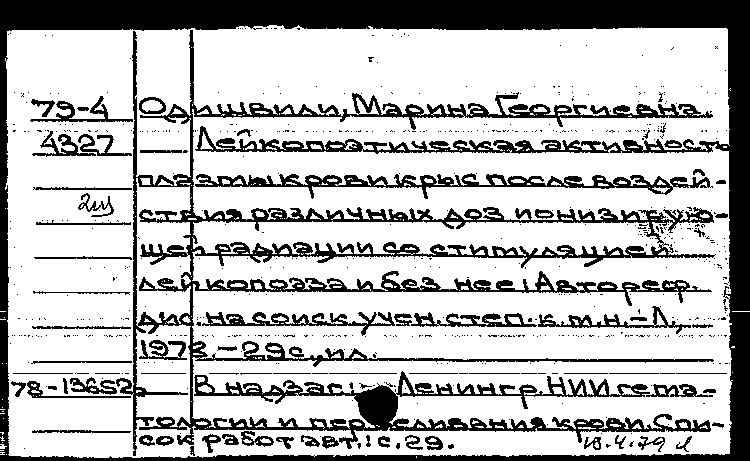 79-4 Одишвили, Марина Георгиевна.
4327 Лейкопоэтическая активность
плазмы крови крыс после воздей-
2ш ствия различных доз ионизирую-
щей радиации со стимуляцией
лейкопоэза и без нее: Автореф.
дис. на соиск. учен. степ. к. м. н. - Л.,
1978. - 29с., ил.
78-13652 В надзаг.: Ленингр. НИИ гема-
тологии и переливания крови. Спи-
сок работ авт.: с. 29. 18.4.79